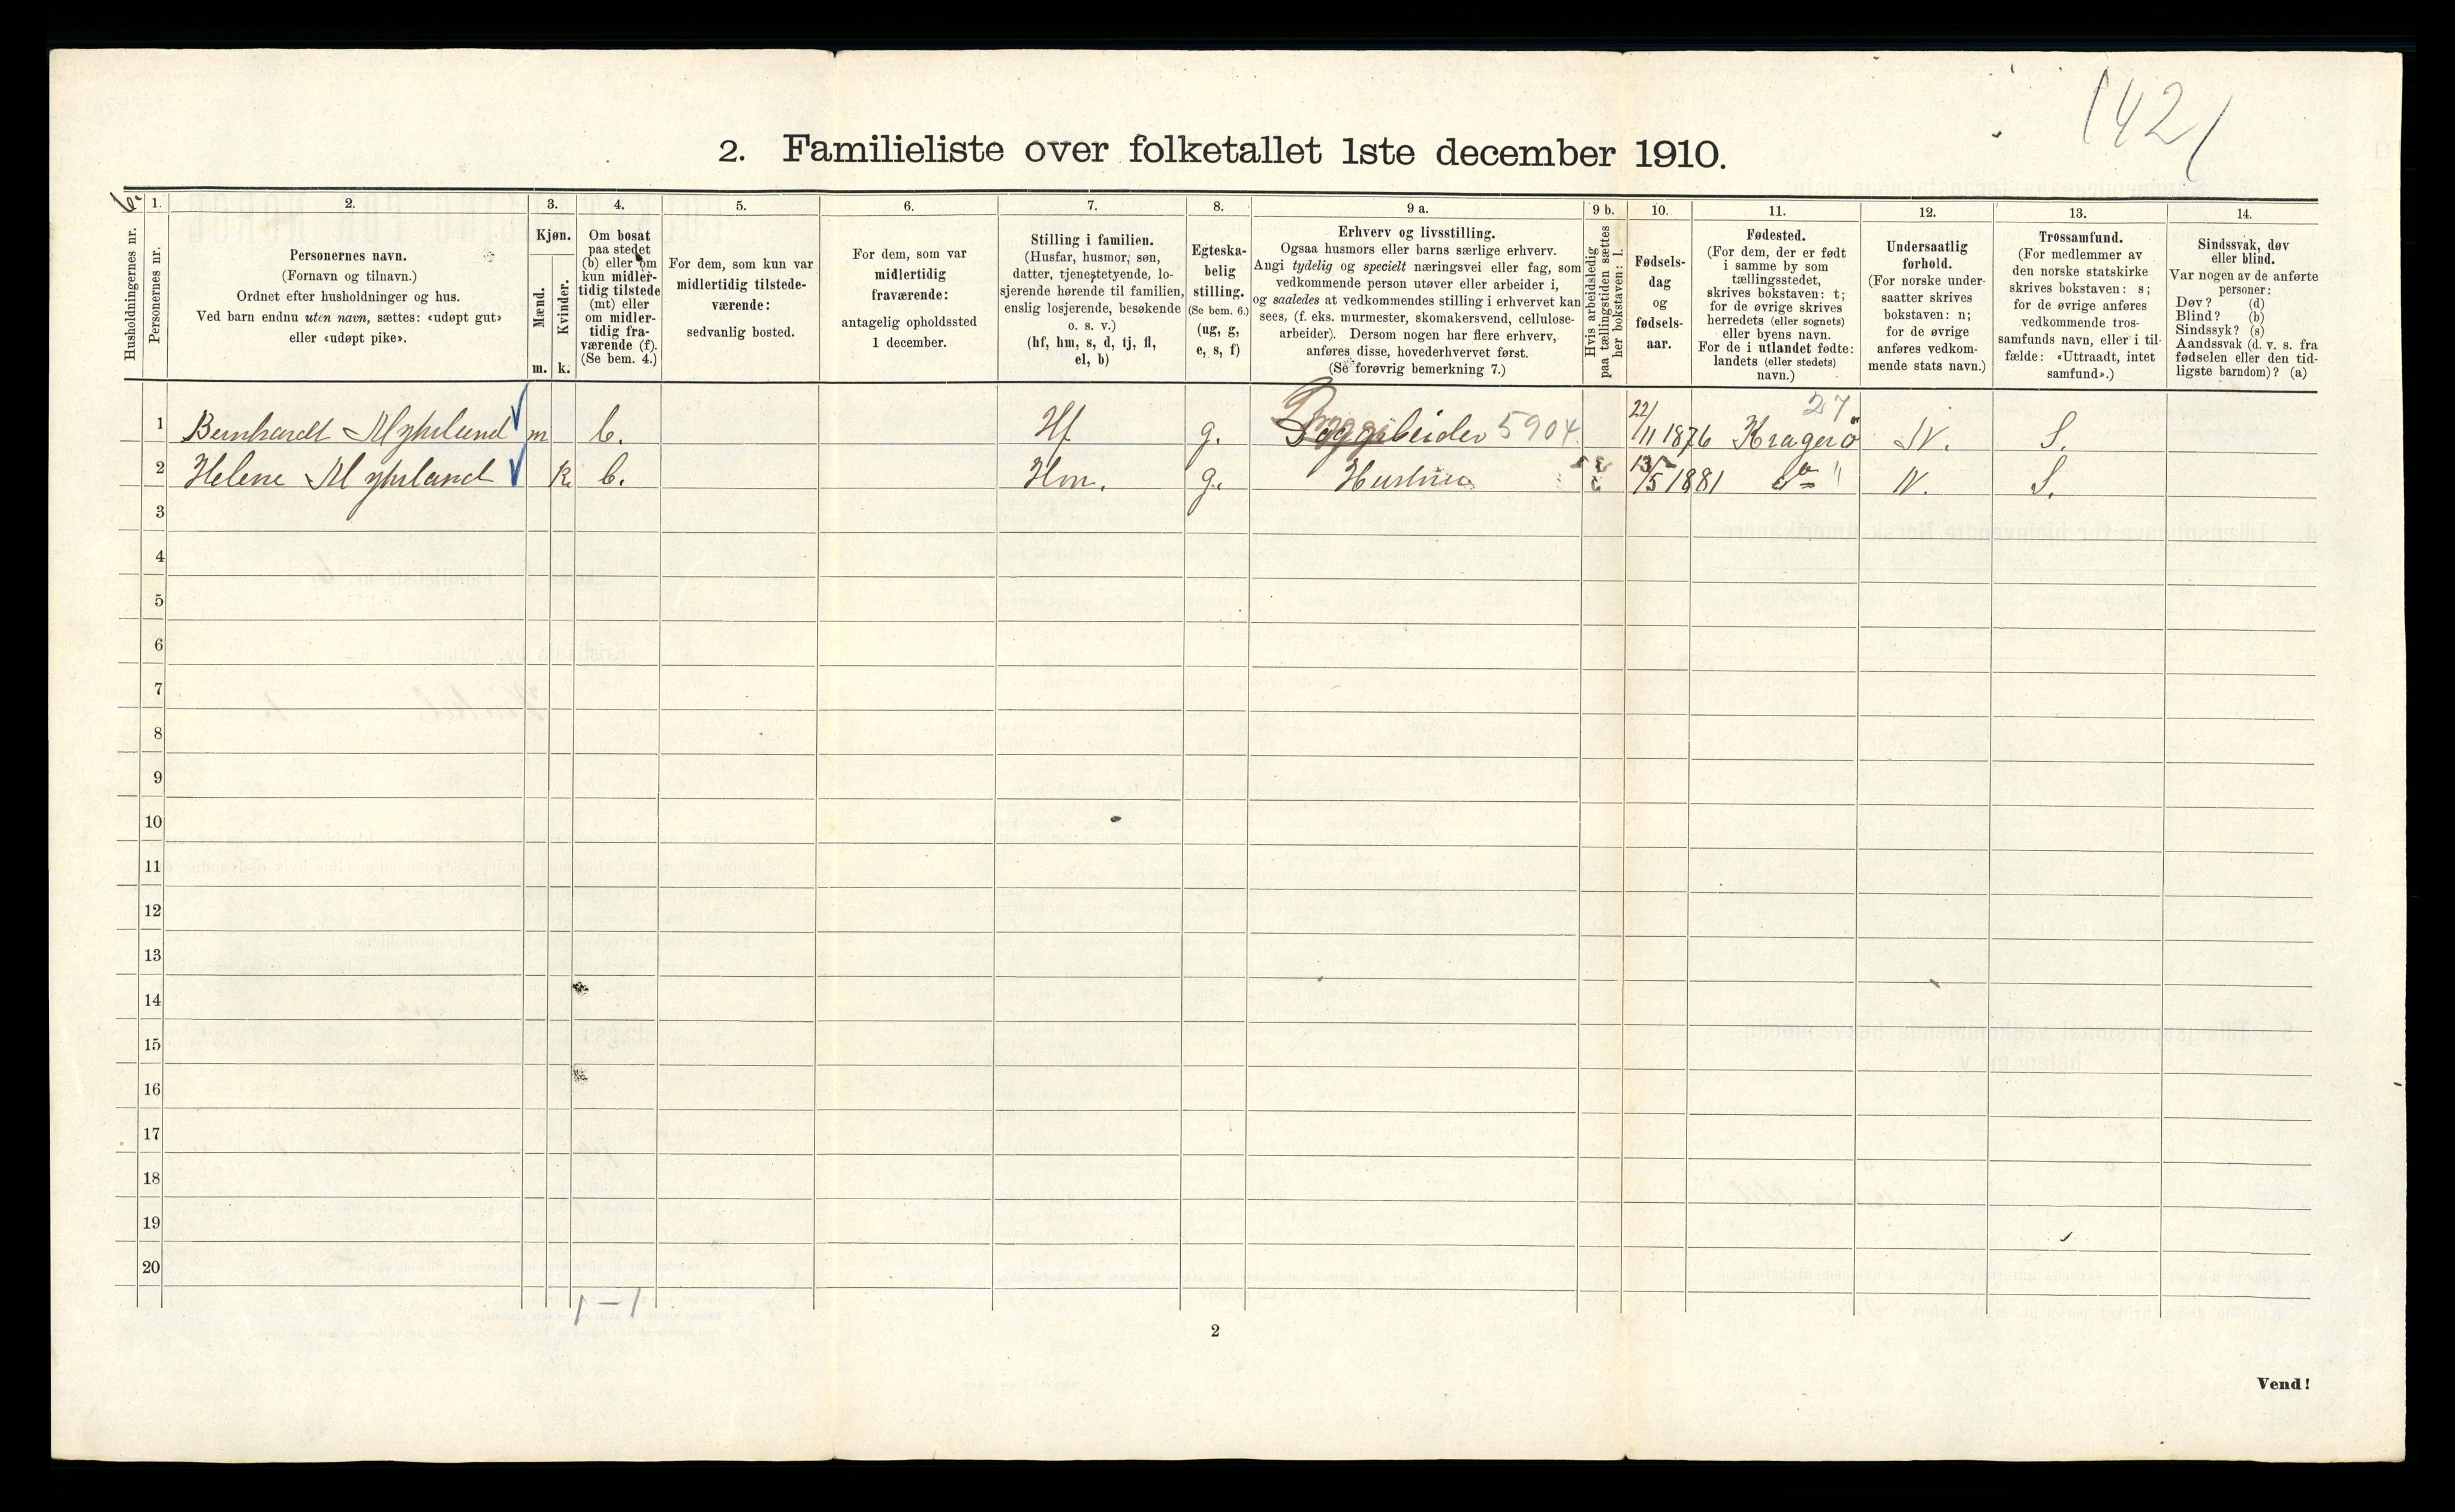 1421
2. Familieliste over folketallet 1ste december 1910.
6.
1. 2. 3. 4. 5. 6. 7. 8. 9 a. 9 b. 10. 11. 12. 13. 14.
Husholdningernes nr.
Personernes nr.
Personernes navn.
(Fornavn og tilnavn.)
Ordnet efter husholdninger og hus.
Ved barn endnu uten navn, sættes: «udøpt gut»
eller «udøpt pike».
Kjøn.
Mænd.
Kvinder.
m. k.
Om bosat
paa stedet
(b) eller om
kun midler-
tidig tilstede
(mt) eller
om midler-
tidig fra-
værende (f).
(Se bem. 4.)
For dem, som kun var
midlertidig tilstede-
værende:
sedvanlig bosted.
For dem, som var
midlertidig
fraværende:
antagelig opholdssted
1 december.
Stilling i familien.
(Husfar, husmor, søn,
datter, tjenestetyende, lo-
sjerende hørende til familien,
enslig losjerende, besøkende
o. s. v.)
(hf, hm, s, d, tj, fl,
el, b)
Egteska-
belig
stilling.
(Se bem. 6.)
(ug, g,
e, s, f)
Erhverv og livsstilling.
Ogsaa husmors eller barns særlige erhverv.
Angi tydelig og specielt næringsvei eller fag, som
vedkommende person utøver eller arbeider i,
og saaledes at vedkommendes stilling i erhvervet kan
sees, (f. eks. murmester, skomakersvend, cellulose-
arbeider). Dersom nogen har flere erhverv,
anføres disse, hovederhvervet først.
(Se forøvrig bemerkning 7.)
Hvis arbeidsledig
paa tællingstiden sættes
her bokstaven: l.
Fødsels-
dag
og
fødsels-
aar.
Fødested.
(For dem, der er født
i samme by som
tællingsstedet,
skrives bokstaven: t;
for de øvrige skrives
herredets (eller sognets)
eller byens navn.
For de i utlandet fødte:
landets (eller stedets)
navn.)
Undersaatlig
forhold.
(For norske under-
saatter skrives
bokstaven: n;
for de øvrige
anføres vedkom-
mende stats navn.)
Trossamfund.
(For medlemmer av
den norske statskirke
skrives bokstaven: s;
for de øvrige anføres
vedkommende tros-
samfunds navn, eller i til-
fælde: «Uttraadt, intet
samfund».)
Sindssvak, døv
eller blind.
Var nogen av de anførte
personer:
Døv? (d)
Blind? (b)
Sindssyk? (s)
Aandssvak (d. v. s. fra
fødselen eller den tid-
ligste barndom)? (a)
27
1 Bernhardt Myhrlund m b. Hf g. 5904 22/11 1876 Kragerö N. S.
2 Helene Myhrland k b. Hm. g. Hustru 13/5 1881 Do " N. S.
3
4
5
6
7
8
9
10
11
12
13
14
15
16
17
18
19
20
1 – 1
2
Vend!